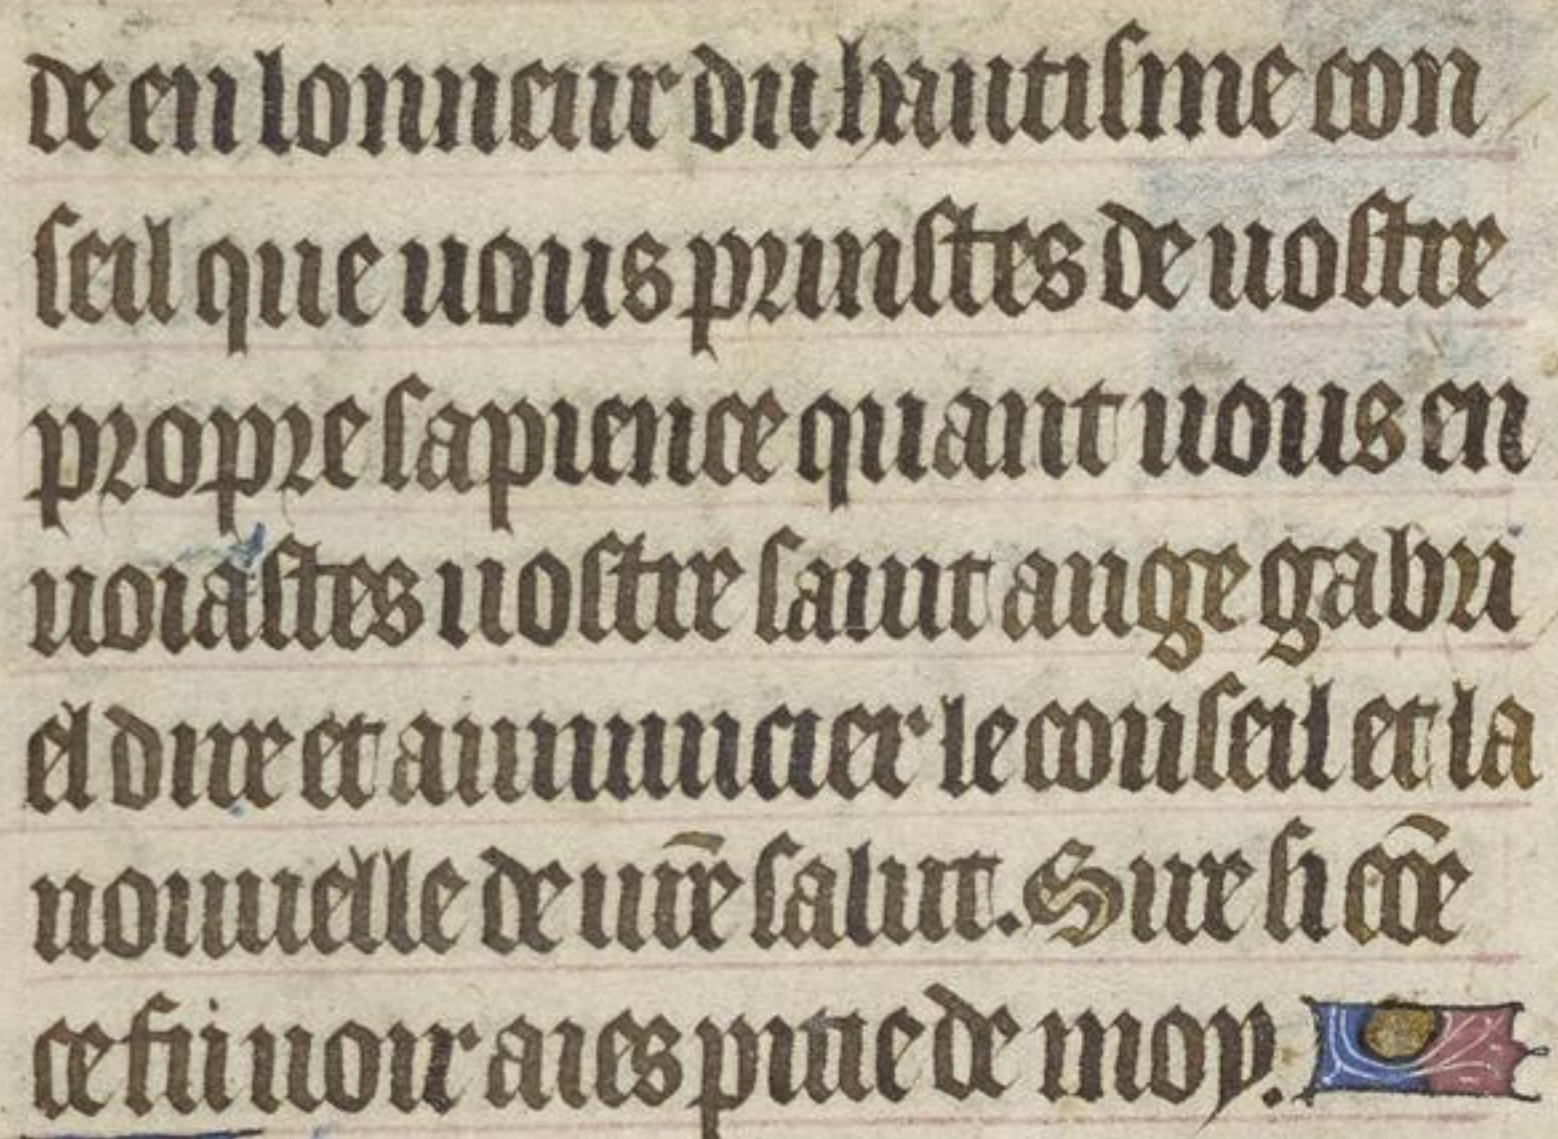 de en lonneur du hautisme con
seil que uous prinstes de uostre
propre sapience quant uous en
uoiastes uostre saint ange gabri
el dire et annuncier le conseil et la
nouuelle de nr̄e salut. Sire si cōe
ce fu uoir aies pitie de moy.